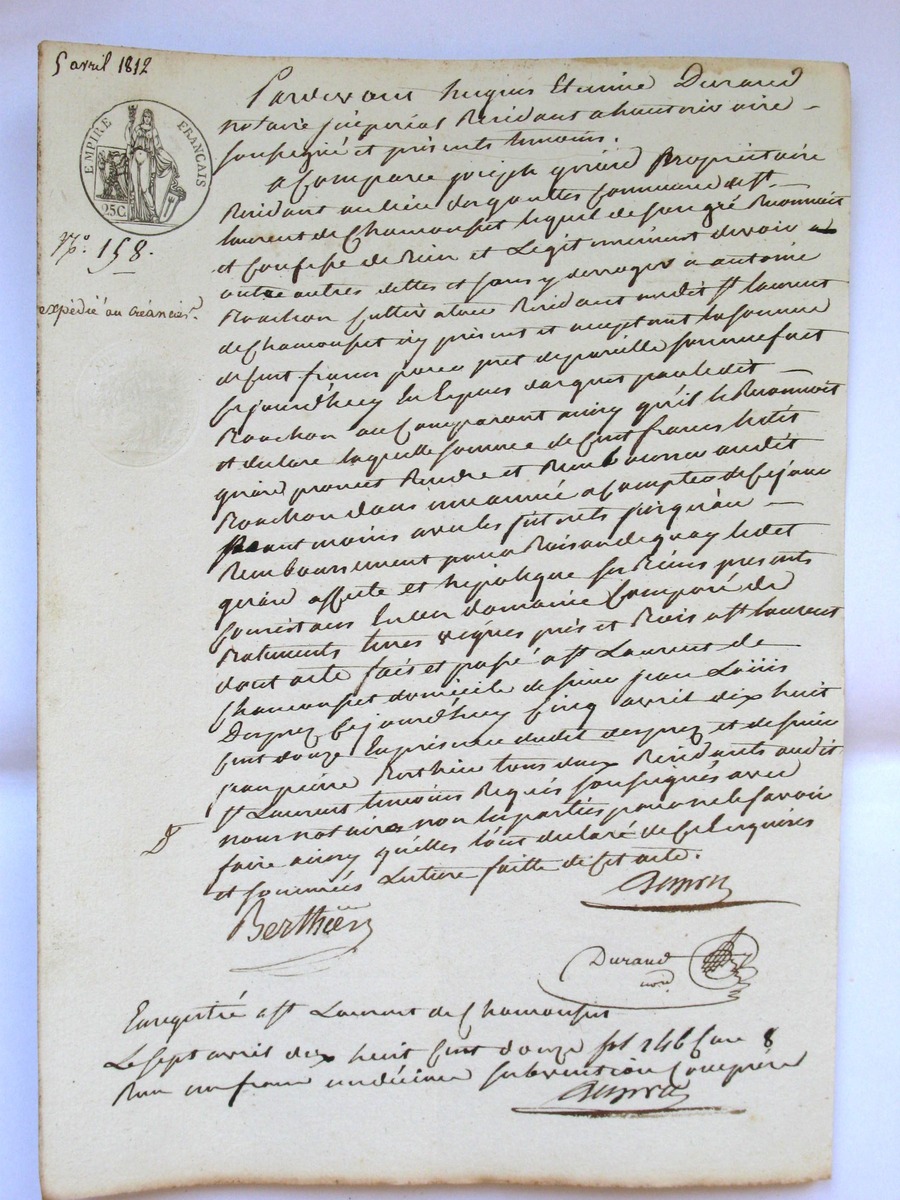 5 avril 1812
EMPIRE FRANÇAIS
25C.
N.º 158.
expédié au créancier.
Pardevant hugues Etienne Durand
notaire jmperial Residant a hauterivoire
soussigné et présents temoins.
a Comparu joseph Proprietaire
Residant au lieu des Commune de St.
laurent de Chamousset lequel de son gré Reconnait
et Confesse de Bien et Legitimement devoir a
entre autres dettes et sans y derroger a antoine
Bouchon Cultivateur Residant audit St laurent
de Chamousset icy present et acceptant la somme
de Cent francs pour pret de pareille somme fait
Cejourdhuy En Especes par ledit
Bouchon au Comparant ainsy qu'il le Reconnoit
et declare laquelle somme de Cent francs ledit
promet Rendre et Rembourser audit
Bouchon dans une année a Compter de Cejour
avec les jnterets jusqu'au
Remboursement pour Raison de quoy ledit
affecte et hipoteque ses Biens presents
Consistans En un domaine Composé de
Batiments terres vignes prés et Bois a St laurent
dont acte fait et passé a St Laurent de
Chamousset domicile de sieur jean Loüis
Desprez Cejourdhuy Cinq avril dix huit
Cent douze En presence dudit desprez et de sieur
jean pierre Berthier tous deux Residants audit
St Laurent temoins Requis soussignés avec
nous notaire non les parties pour ne le savoir
faire ainsy qu'elles l'ont declaré de Ce Enquises
et sommées Lecture faitte de Cet acte.
D
Berthier
Durand
nore
Enregistré a St Laurent de Chamousset
Le sept avril dix huit Cent douze fol 146 Case 8
Reçu un franc un décime subvention Comprise